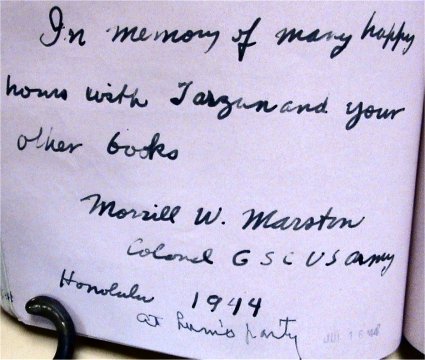 In memory of many happy
hours with Tarzan and your
other books
Morrill W. Marston
Colonel G S C US Army
Honolulu 1944
at party